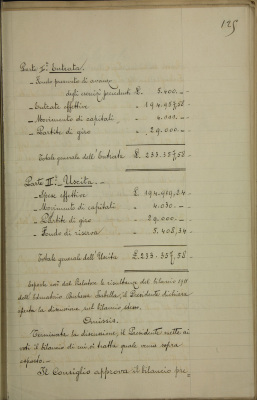 125
Parte I.ª Entrata.
- Fondo presunto di avanzo
degli esercizi precedenti £. 5.400. -
- Entrate effettive " 194.957,58 -
- Movimento di capitali " 4.000. -
- Partite di giro " 29.000. -
Totale generale dell'Entrata £. 233.357,58 -
Parte II.ª Uscita. -
- Spese effettive £. 194.919,24 -
- Movimento di capitali " 4.030. -
- Partite di giro " 29.000. -
- Fondo di riserva " 5.408,34 -
Totale generale dell'Uscita £. 233.357,58 -
Esposte dal Relatore le risultanze del bilancio 1911
dell'Educatorio Duchessa Isabella, il Presidente dichiara
aperta la discussione sul bilancio stesso.
Omissis.
Terminata la discussione, il Presidente mette ai
voti il bilancio di cui si tratta quale venne sopra
esposto. -
Il Consiglio approva il bilancio pre-